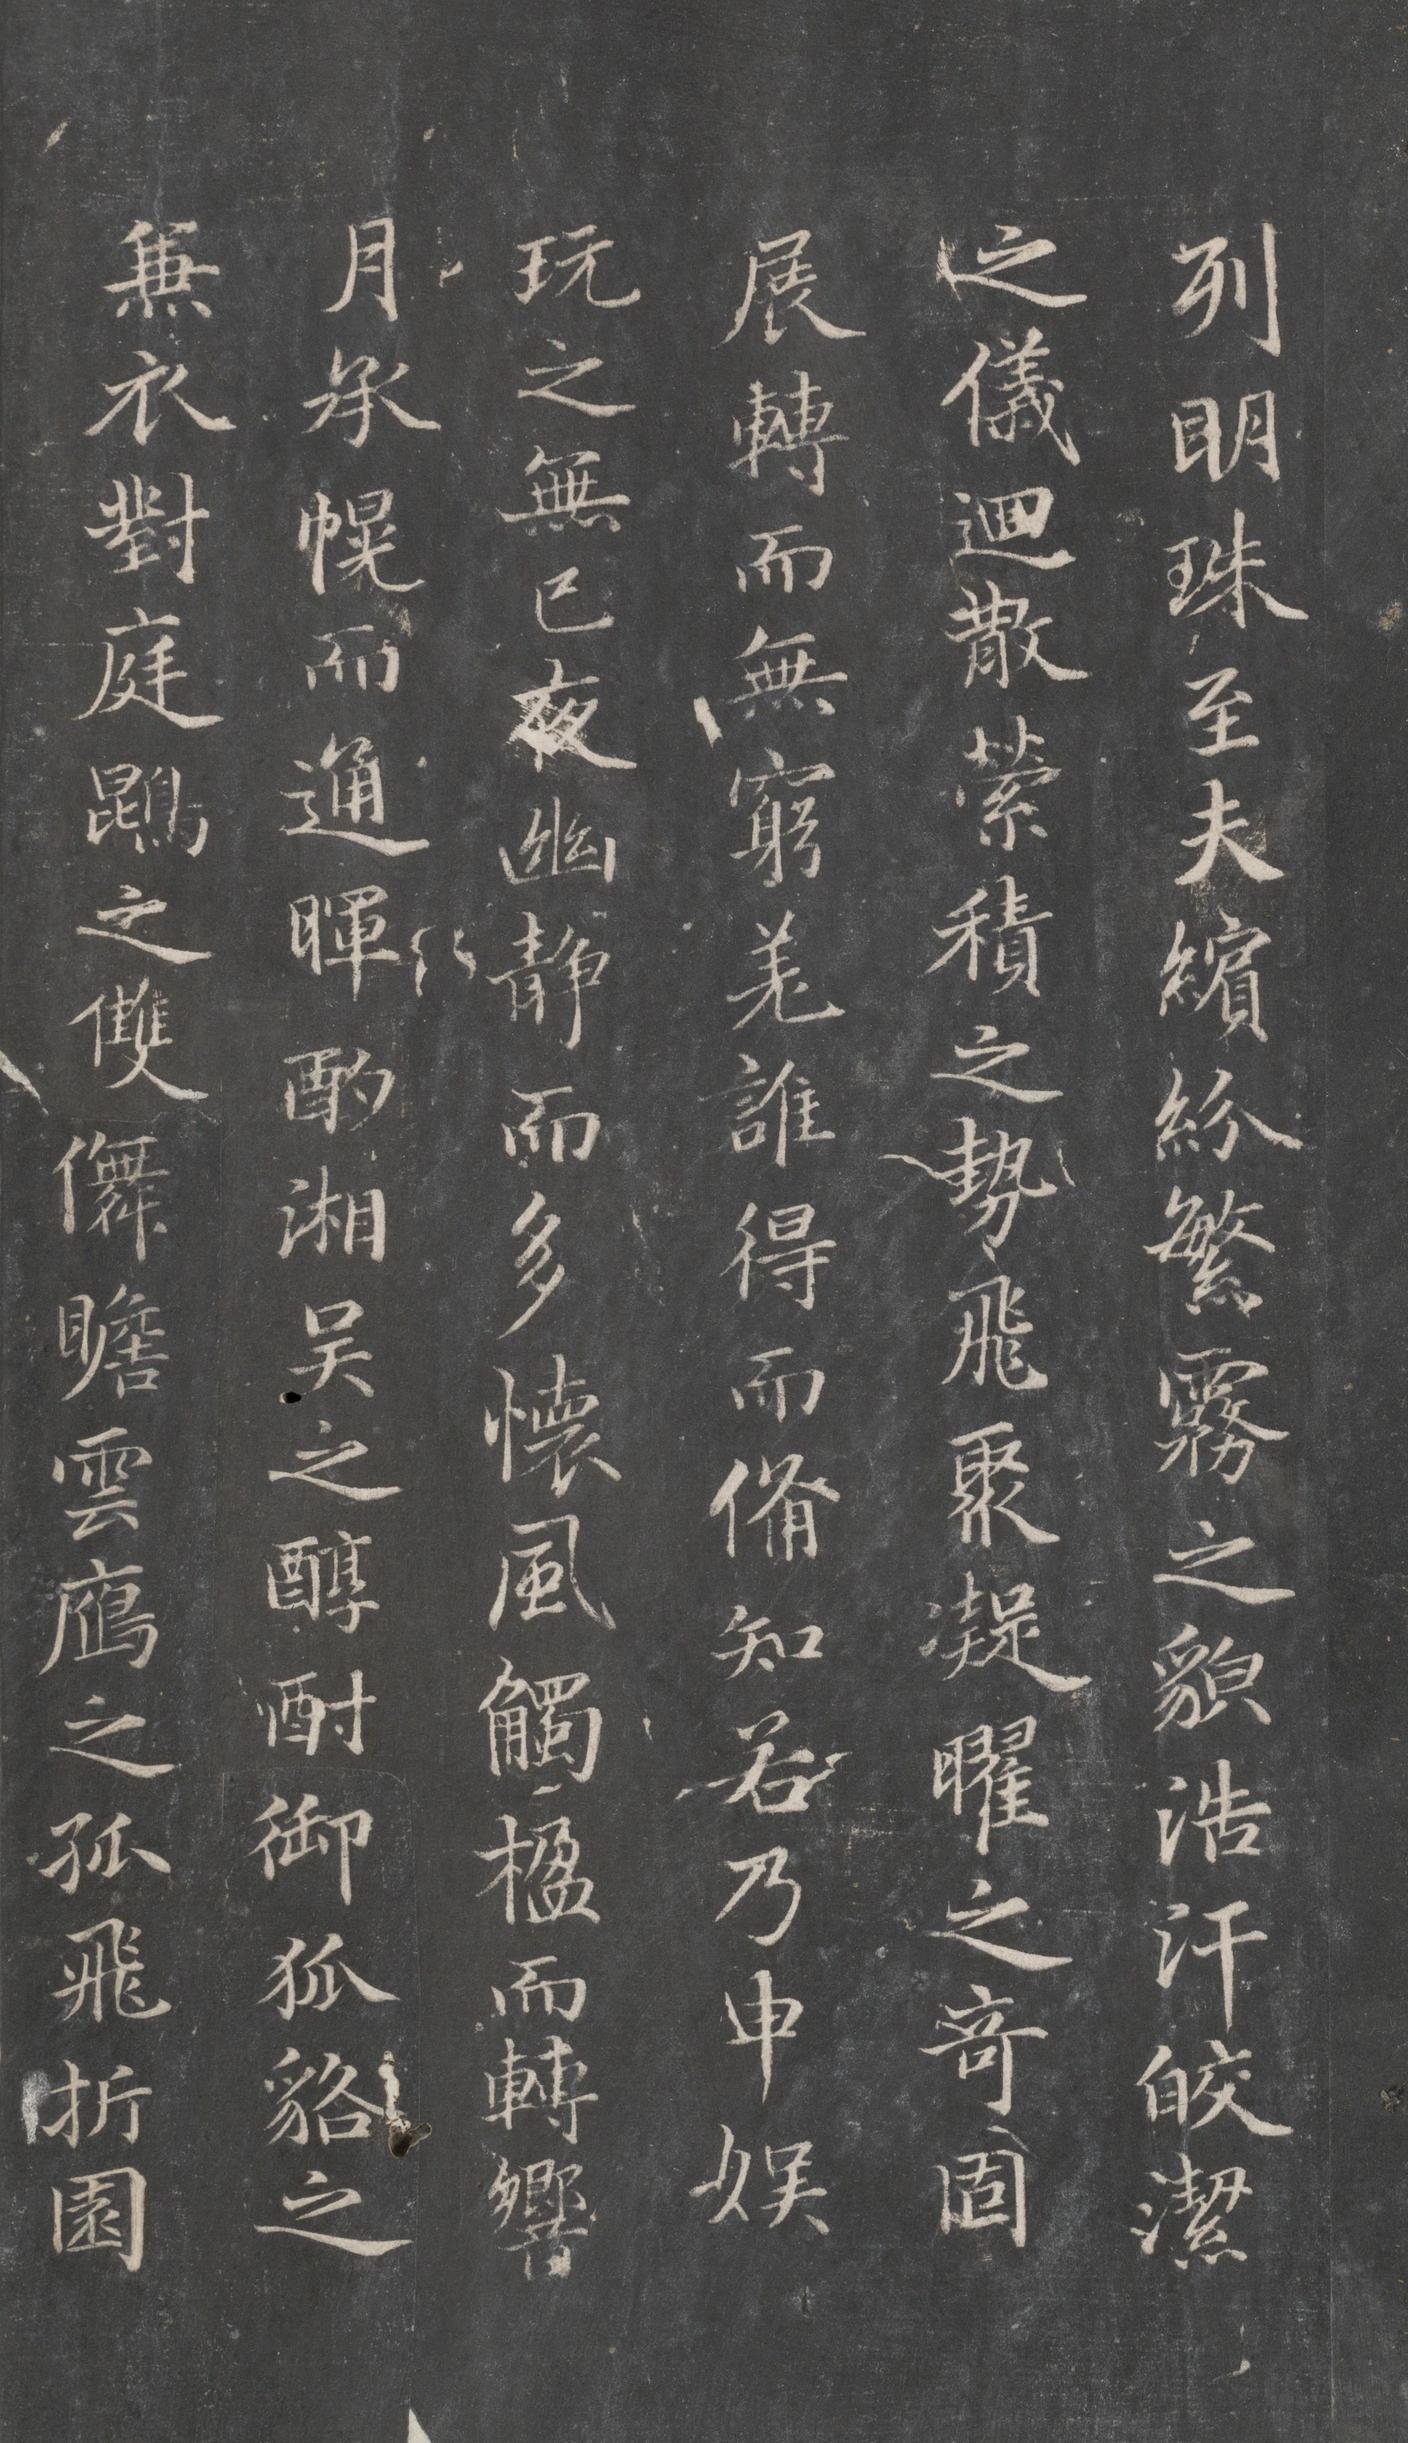 列明珠至夫繽紛繁霧之貌浩汗皎潔
之儀迴散萦積之勢飛聚凝曜之竒固
展轉而無窮羌誰得而備知若乃申娱
玩之無已夜幽静而多懐風觸楹而轉響
月承幌而通暉酌湘吴之醇酎御狐貉之
兼衣對庭鵾之雙儛瞻雲鴈之孤飛折園